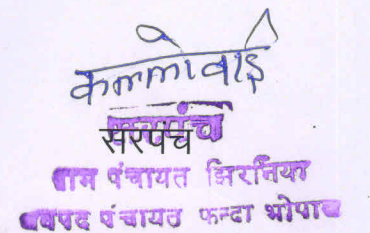 कल्लोबाई
सरपंच
सरपंच
ग्राम पंचायत झिरनिया
जनपद पंचायत फन्दा भोपाल